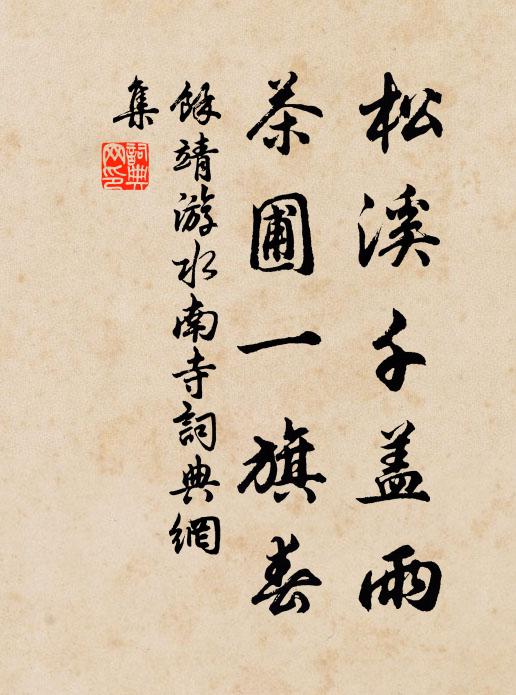 松溪千盖雨
茶圃一旗春
馀靖游水南寺詞典網
集
詞典網印